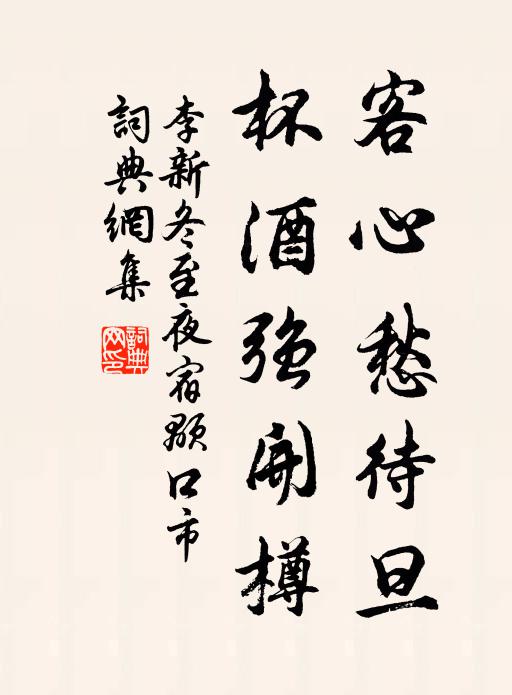 客心愁待旦
杯酒強開樽
李新冬至夜宿顥口市
詞典網集
詞典網印